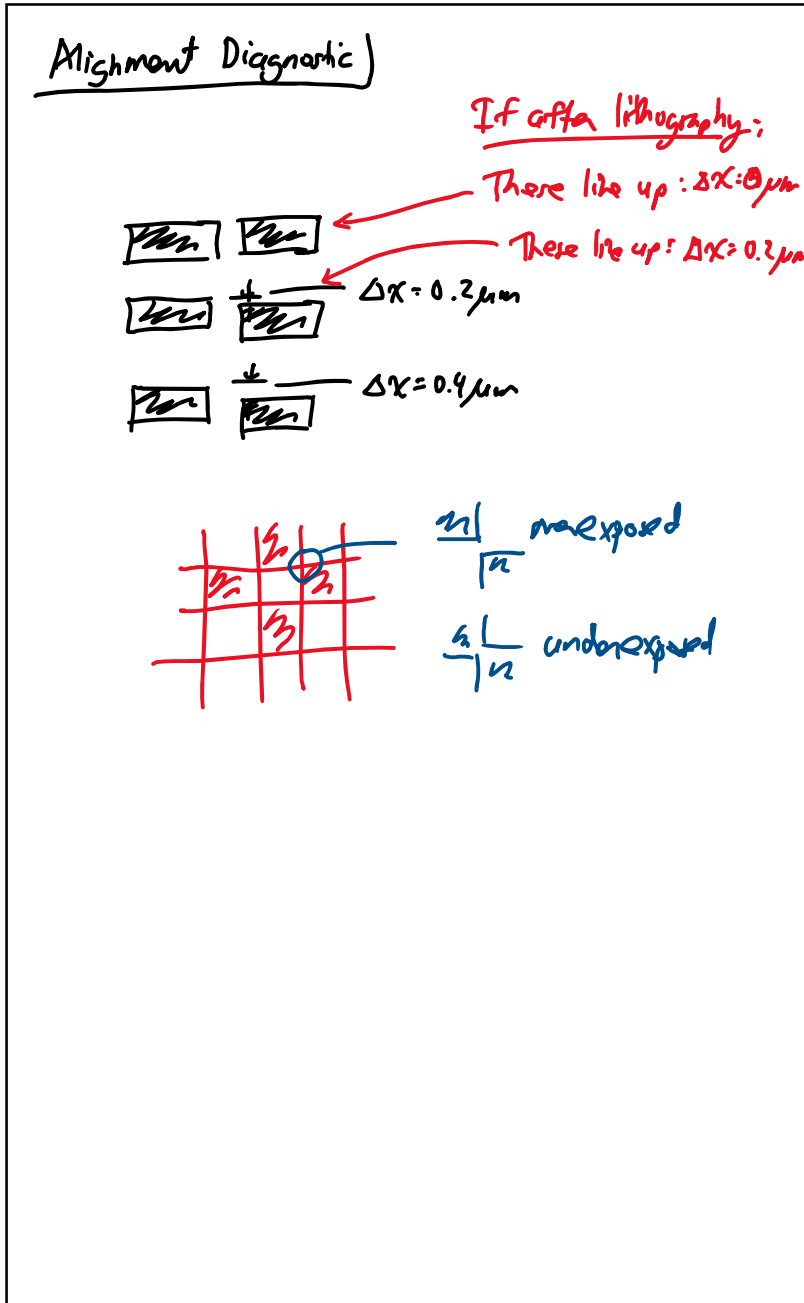 Alignment Diagnostic
If after lithography:
These line up: Δx=0 μm
These line up: Δx=0.2 μm
Δx=0.2 μm
Δx=0.4 μm
overexposed
underexposed